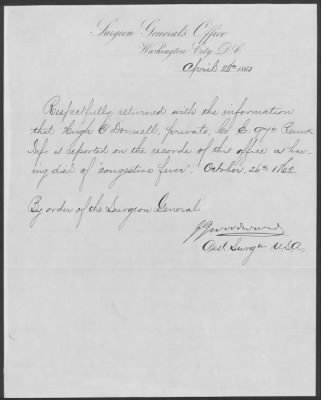 Surgeon General's Office
Washington City, D.C.
April 28th 1863
Respectfully returned with the information
that Hugh O'Donnell, private, Co. E. 97th Penna
Inf. is reported on the records of this office as hav-
ing died of "congestive fever". October, 26th 1862
By order of the Surgeon General
Asst Surgn U.S.A.